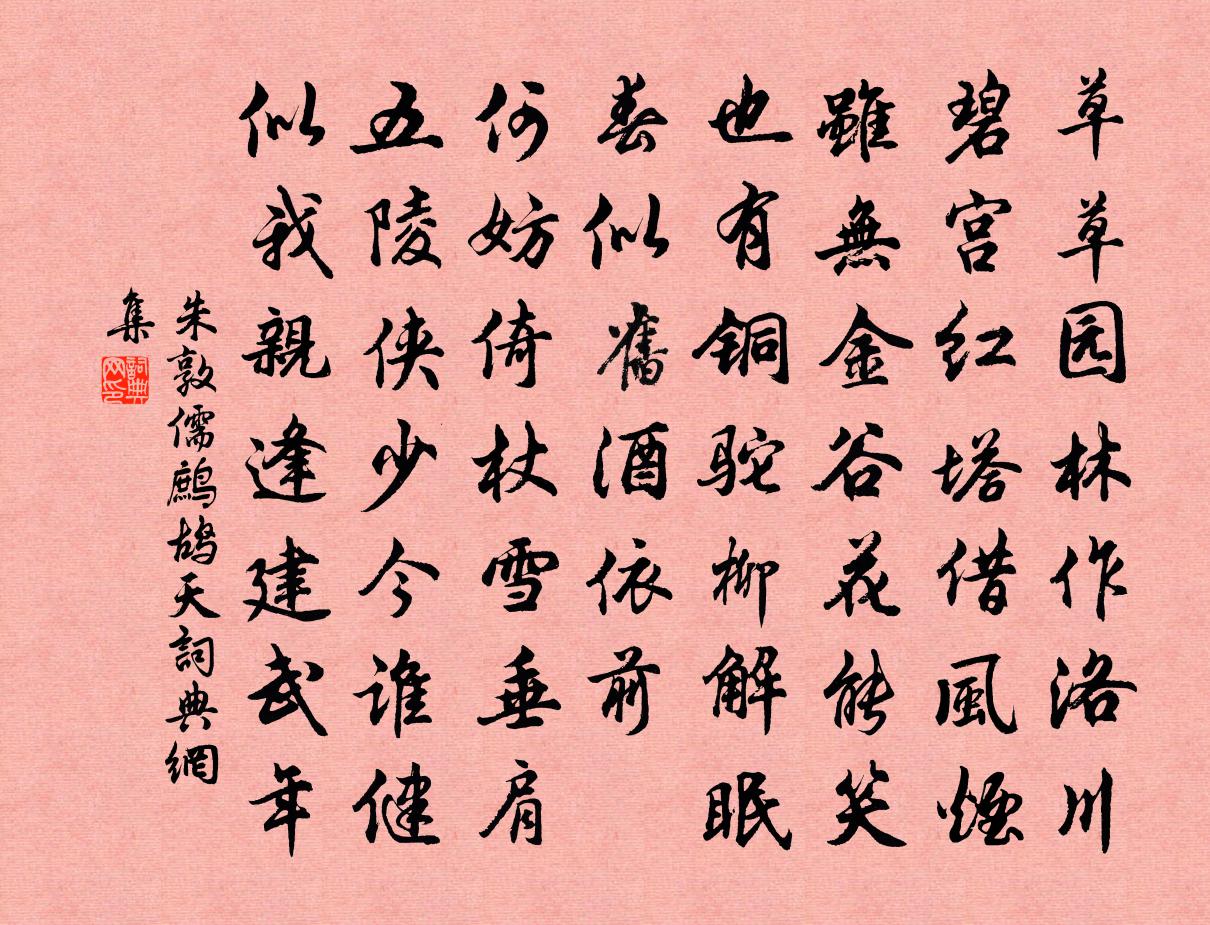 草草园林作洛川
碧宫红塔借風煙
雖無金谷花能笑
也有铜驼柳解眠
春似舊酒依前
何妨倚杖雪垂肩
五陵侠少今谁健
似我親逢建武年
朱敦儒鷓鸪天詞典網
集
詞典网印